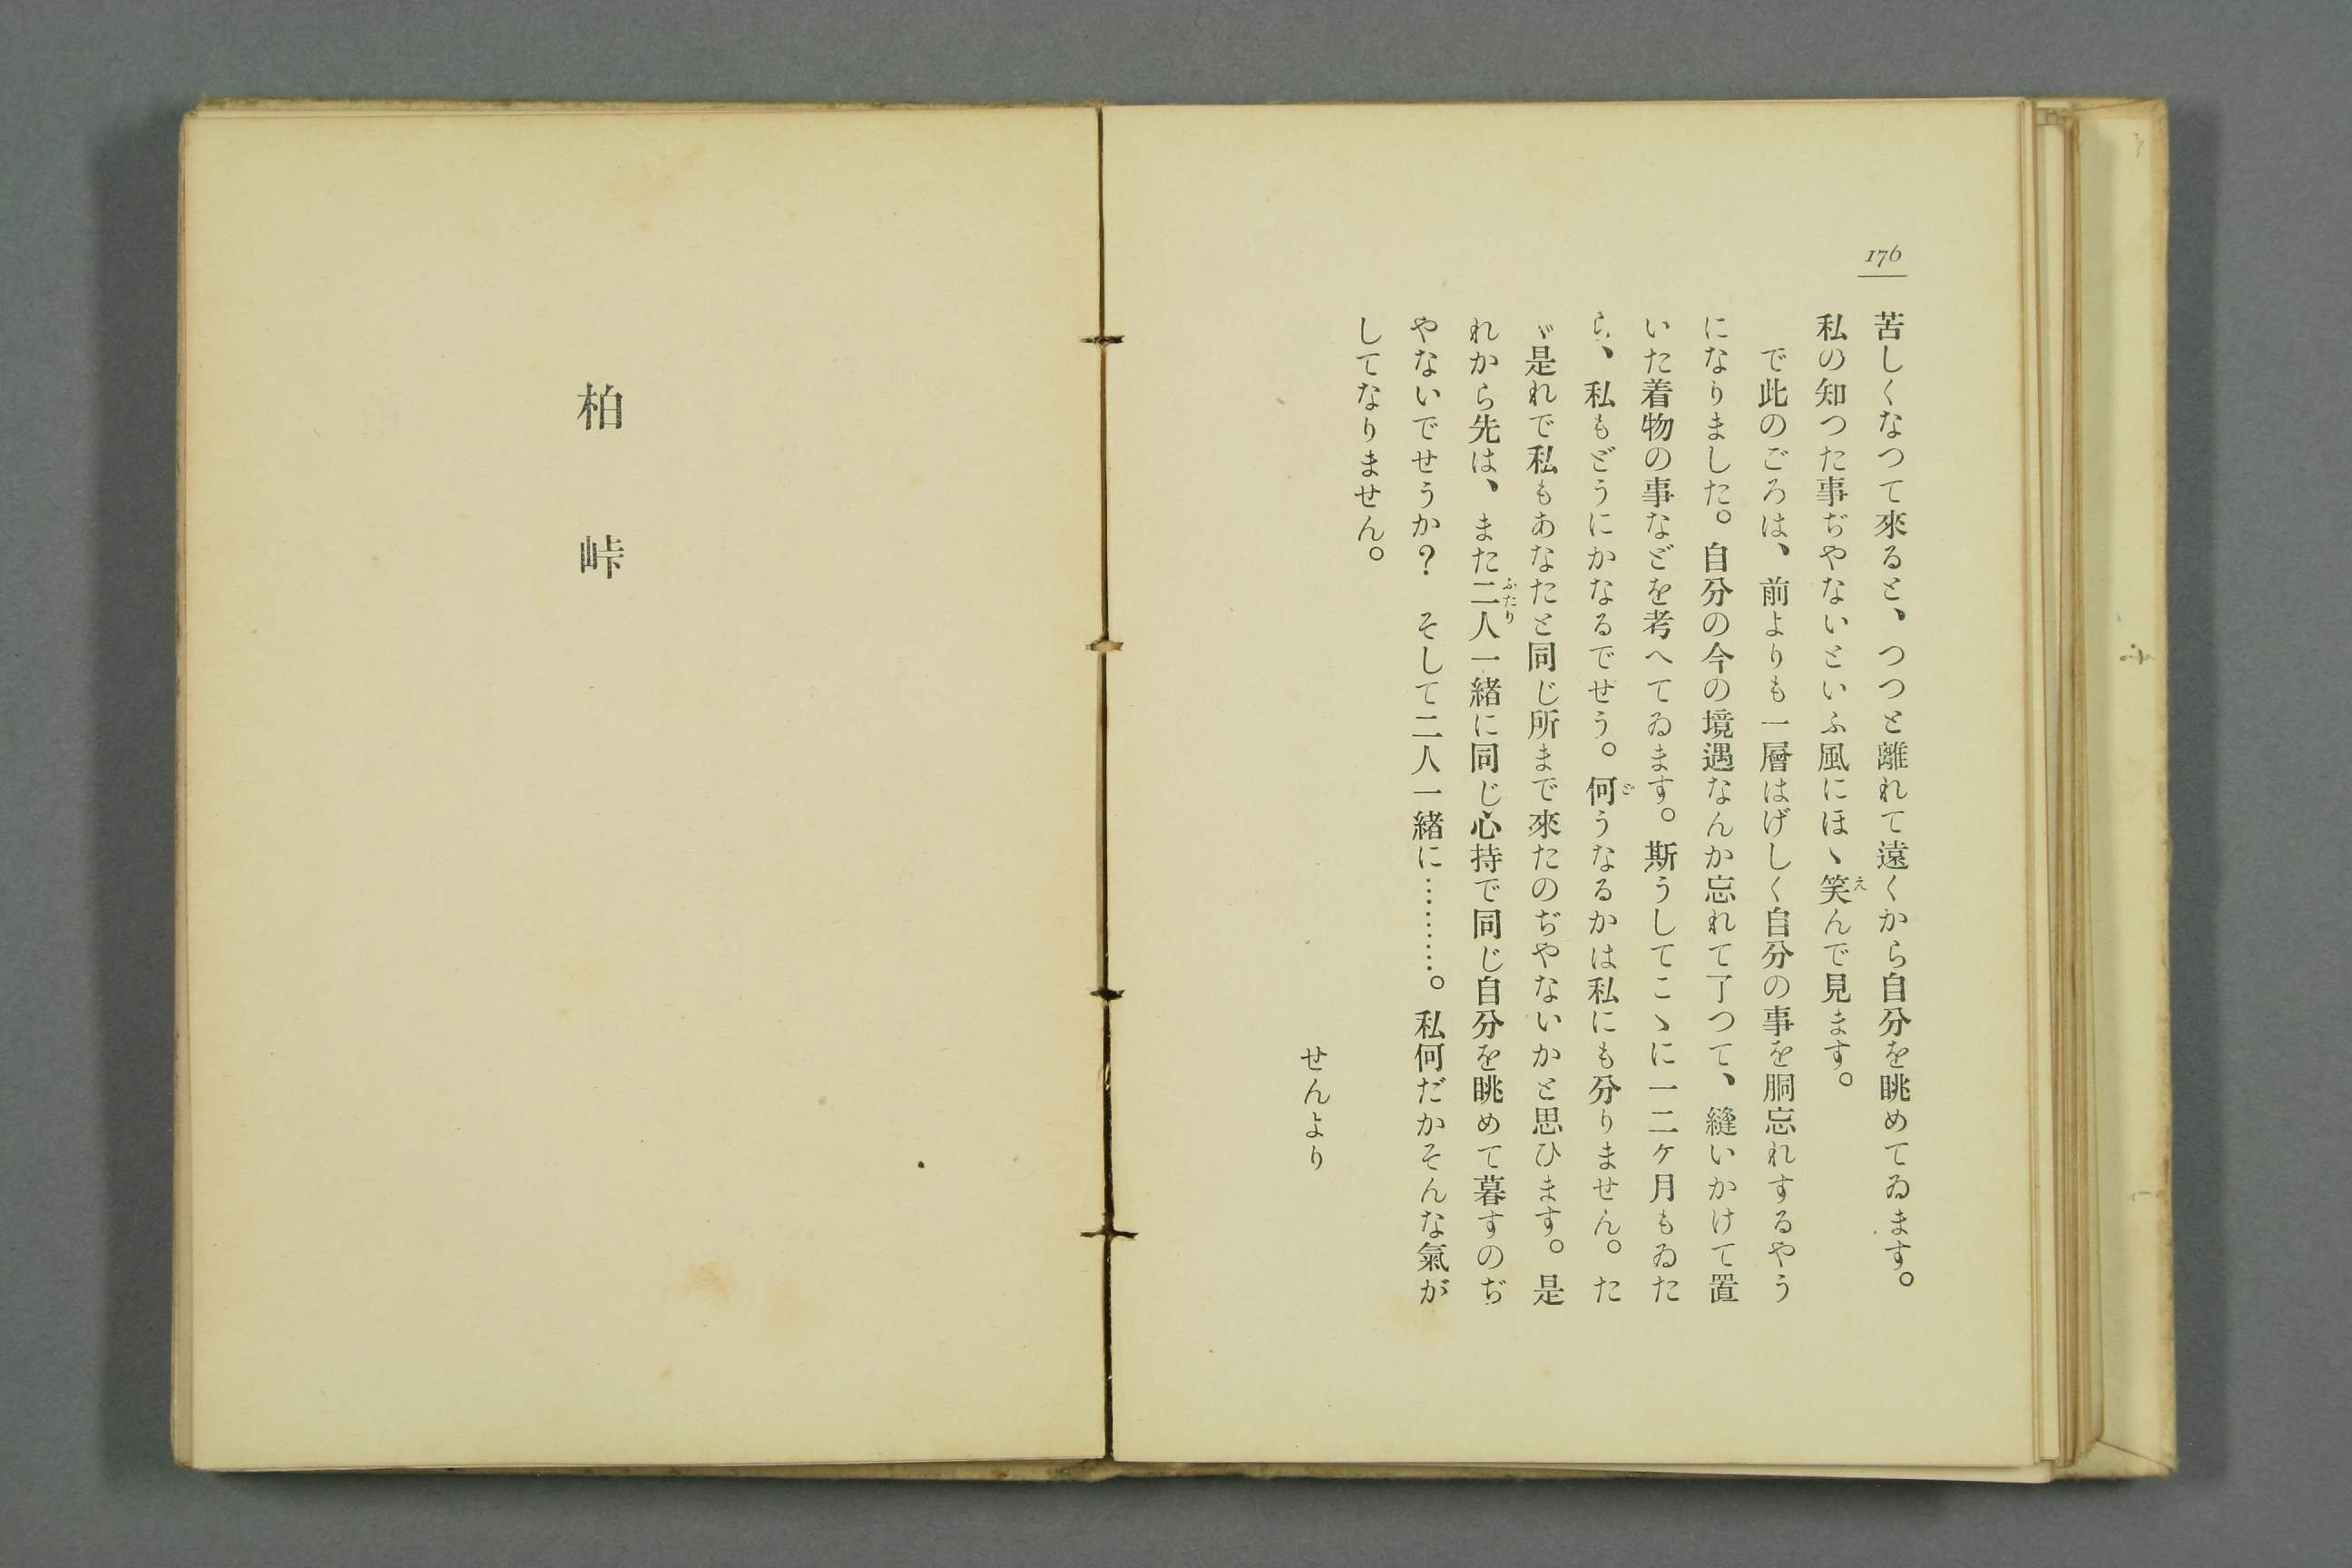 176
苦しくなつて來ると、つつと離れて遠くから自分を眺めてゐます。
私の知つた事ぢやないといふ風にほゝ笑んで見ます。
で此のごろは、前よりも一層はげしく自分の事を胴忘れするやう
になりました。自分の今の境遇なんか忘れて了つて、縫いかけて置
いた着物の事などを考へてゐます。斯うしてこゝに一二ケ月もゐた
ら、私もどうにかなるでせう。何うなるかは私にも分りません。た
ゞ是れで私もあなたと同じ所まで來たのぢやないかと思ひます。是
れから先は、また二人一緒に同じ心持で同じ自分を眺めて暮すのぢ
やないでせうか？　そして二人一緒に………。私何だかそんな氣が
してなりません。
せんより
柏峠